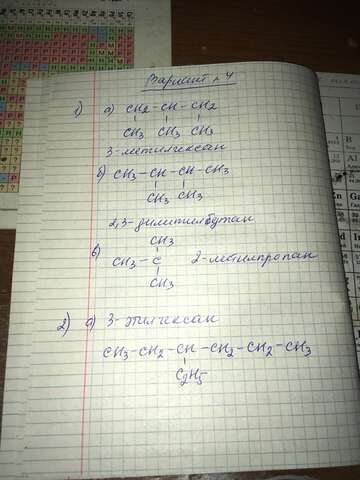 Вариант №4
1) а) CH2-CH-CH2
CH3 CH3 CH3
3-метилгексан
б) CH3-CH-CH-CH3
CH3 CH3
2,3-диметилбутан
CH3
в) CH3-C 2-метилпропан
CH3
2) а) 3-этилгексан
CH3-CH2-CH-CH2-CH2-CH3
C2H5